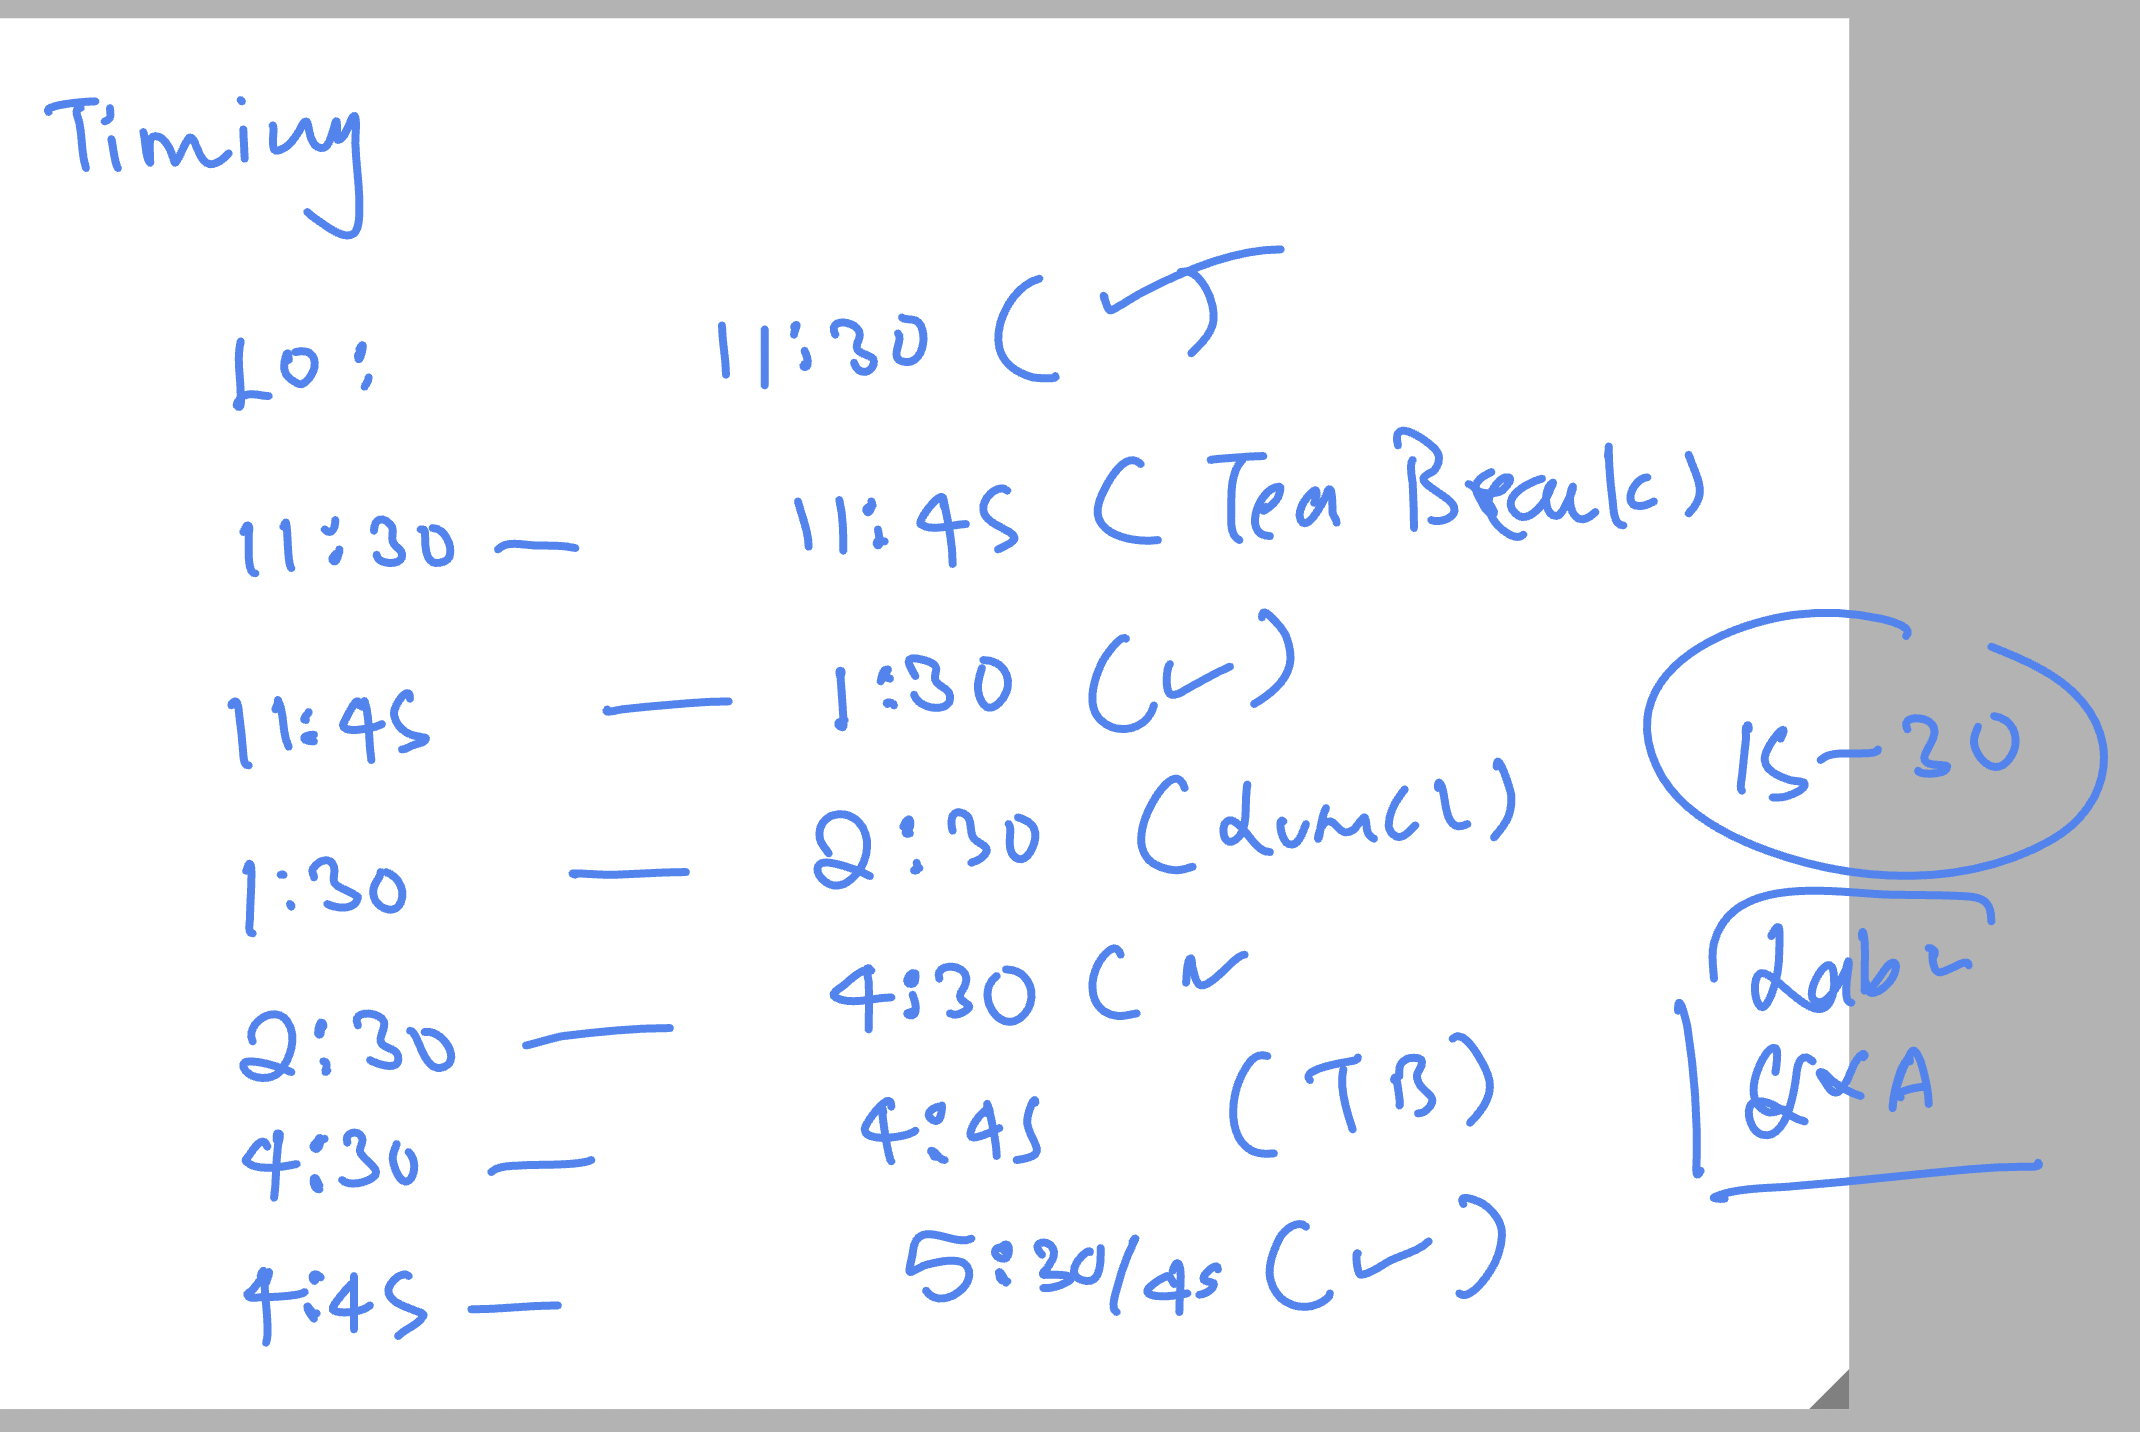 Timing
10: 11:30 (✓)
11:30 — 11:45 (Tea Break)
11:45 — 1:30 (✓)
1:30 — 2:30 (Lunch)
2:30 — 4:30 (✓
4:30 — 4:45 (TB)
4:45 — 5:30/45 (✓)
15-30
Lab ✓
Q&A